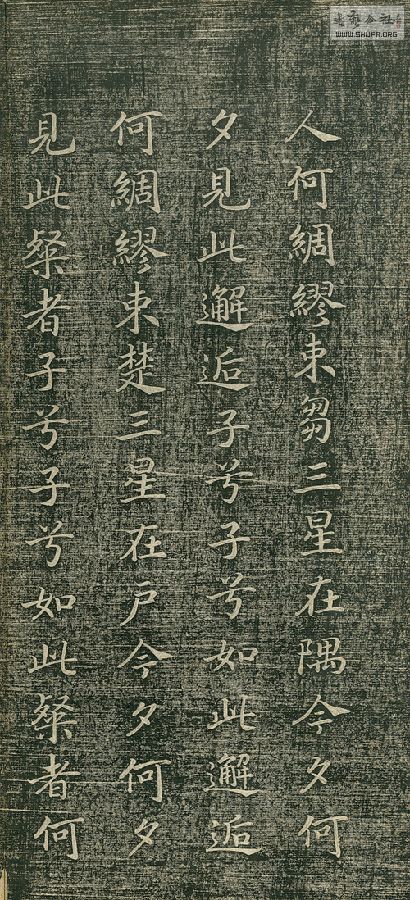 人何綢繆束芻三星在隅今夕何
夕見此邂逅子兮子兮如此邂逅
何綢繆束楚三星在戶今夕何夕
見此粲者子兮子兮如此粲者何
WWW.SHUFA.ORG